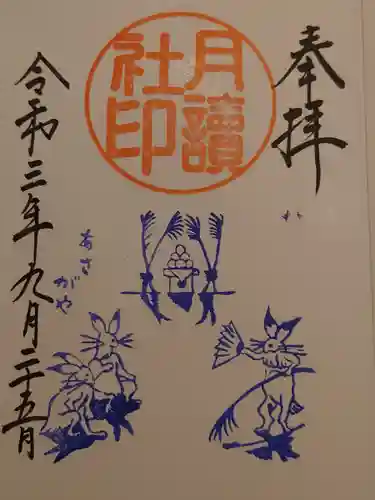 奉拝
月讀
社印
あさ
がや
令和三年九月二十五月